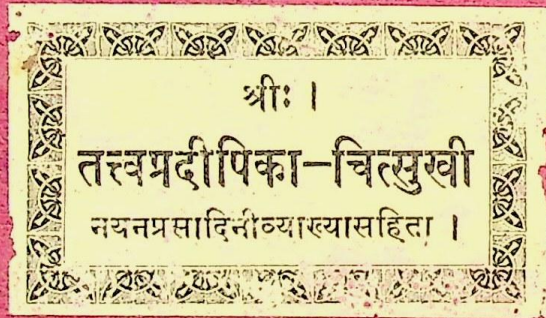 श्रीः ।
तत्त्वप्रदीपिका–चित्सुखी
नयनप्रसादिनीव्याख्यासहिता ।